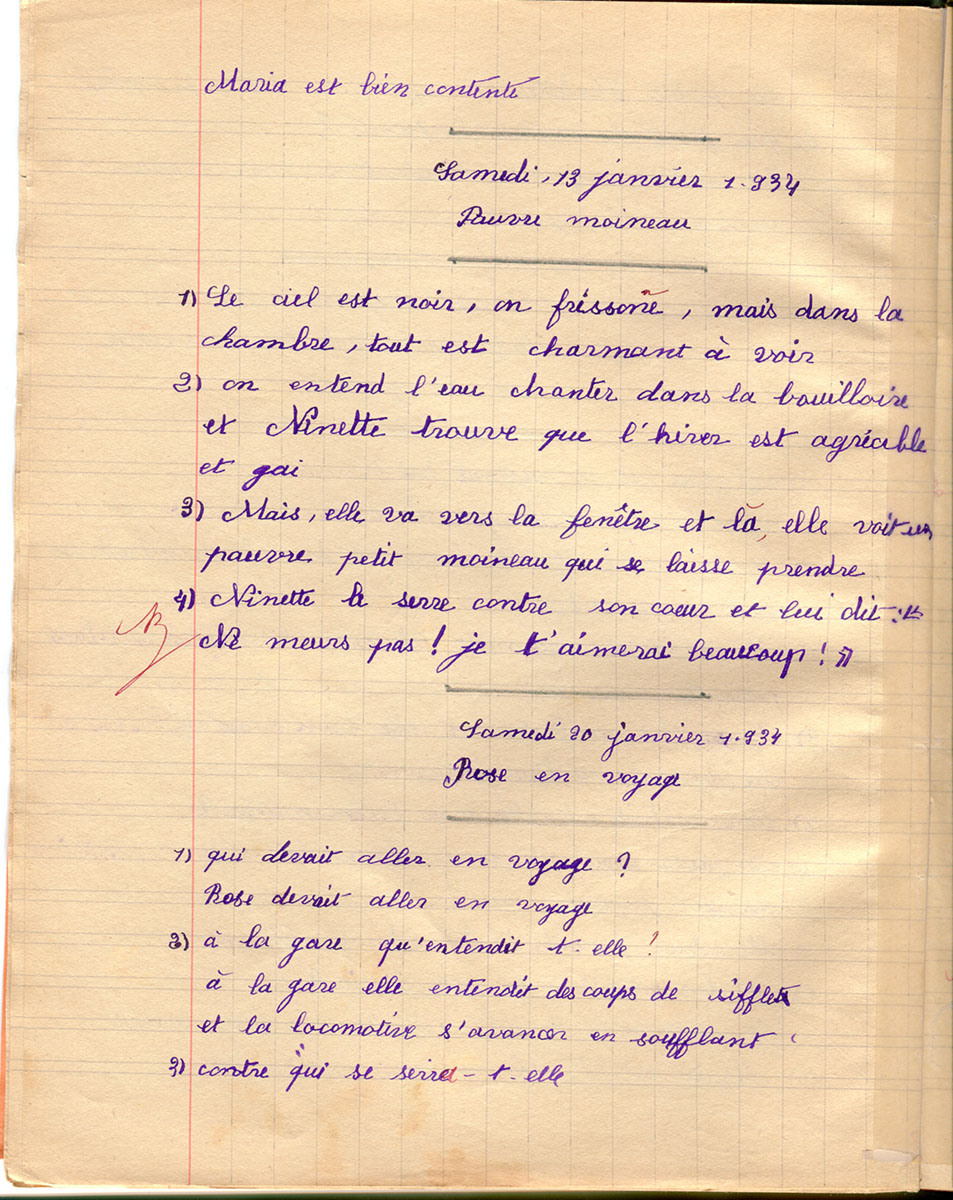 Maria est bien contente
Samedi, 13 janvier 1.934
Pauvre moineau
1) Le ciel est noir, on frissone, mais dans la
chambre, tout est charmant à voir
2) on entend l'eau chanter dans la bouilloire
et Ninette trouve que l'hiver est agréable
et gai
3) Mais, elle va vers la fenêtre et là, elle voit un
pauvre petit moineau qui se laisse prendre
4) Ninette le serre contre son coeur et lui dit : "
Ne meurs pas ! je t'aimerai beaucoup ! "
Samedi 20 janvier 1.934
Rose en voyage
1) qui devait aller en voyage ?
Rose devait aller en voyage
2) à la gare qu'entendit t-elle ?
à la gare elle entendit des coups de sifflets
et la locomotive s'avancer en soufflant
3) contre qui se serra-t-elle